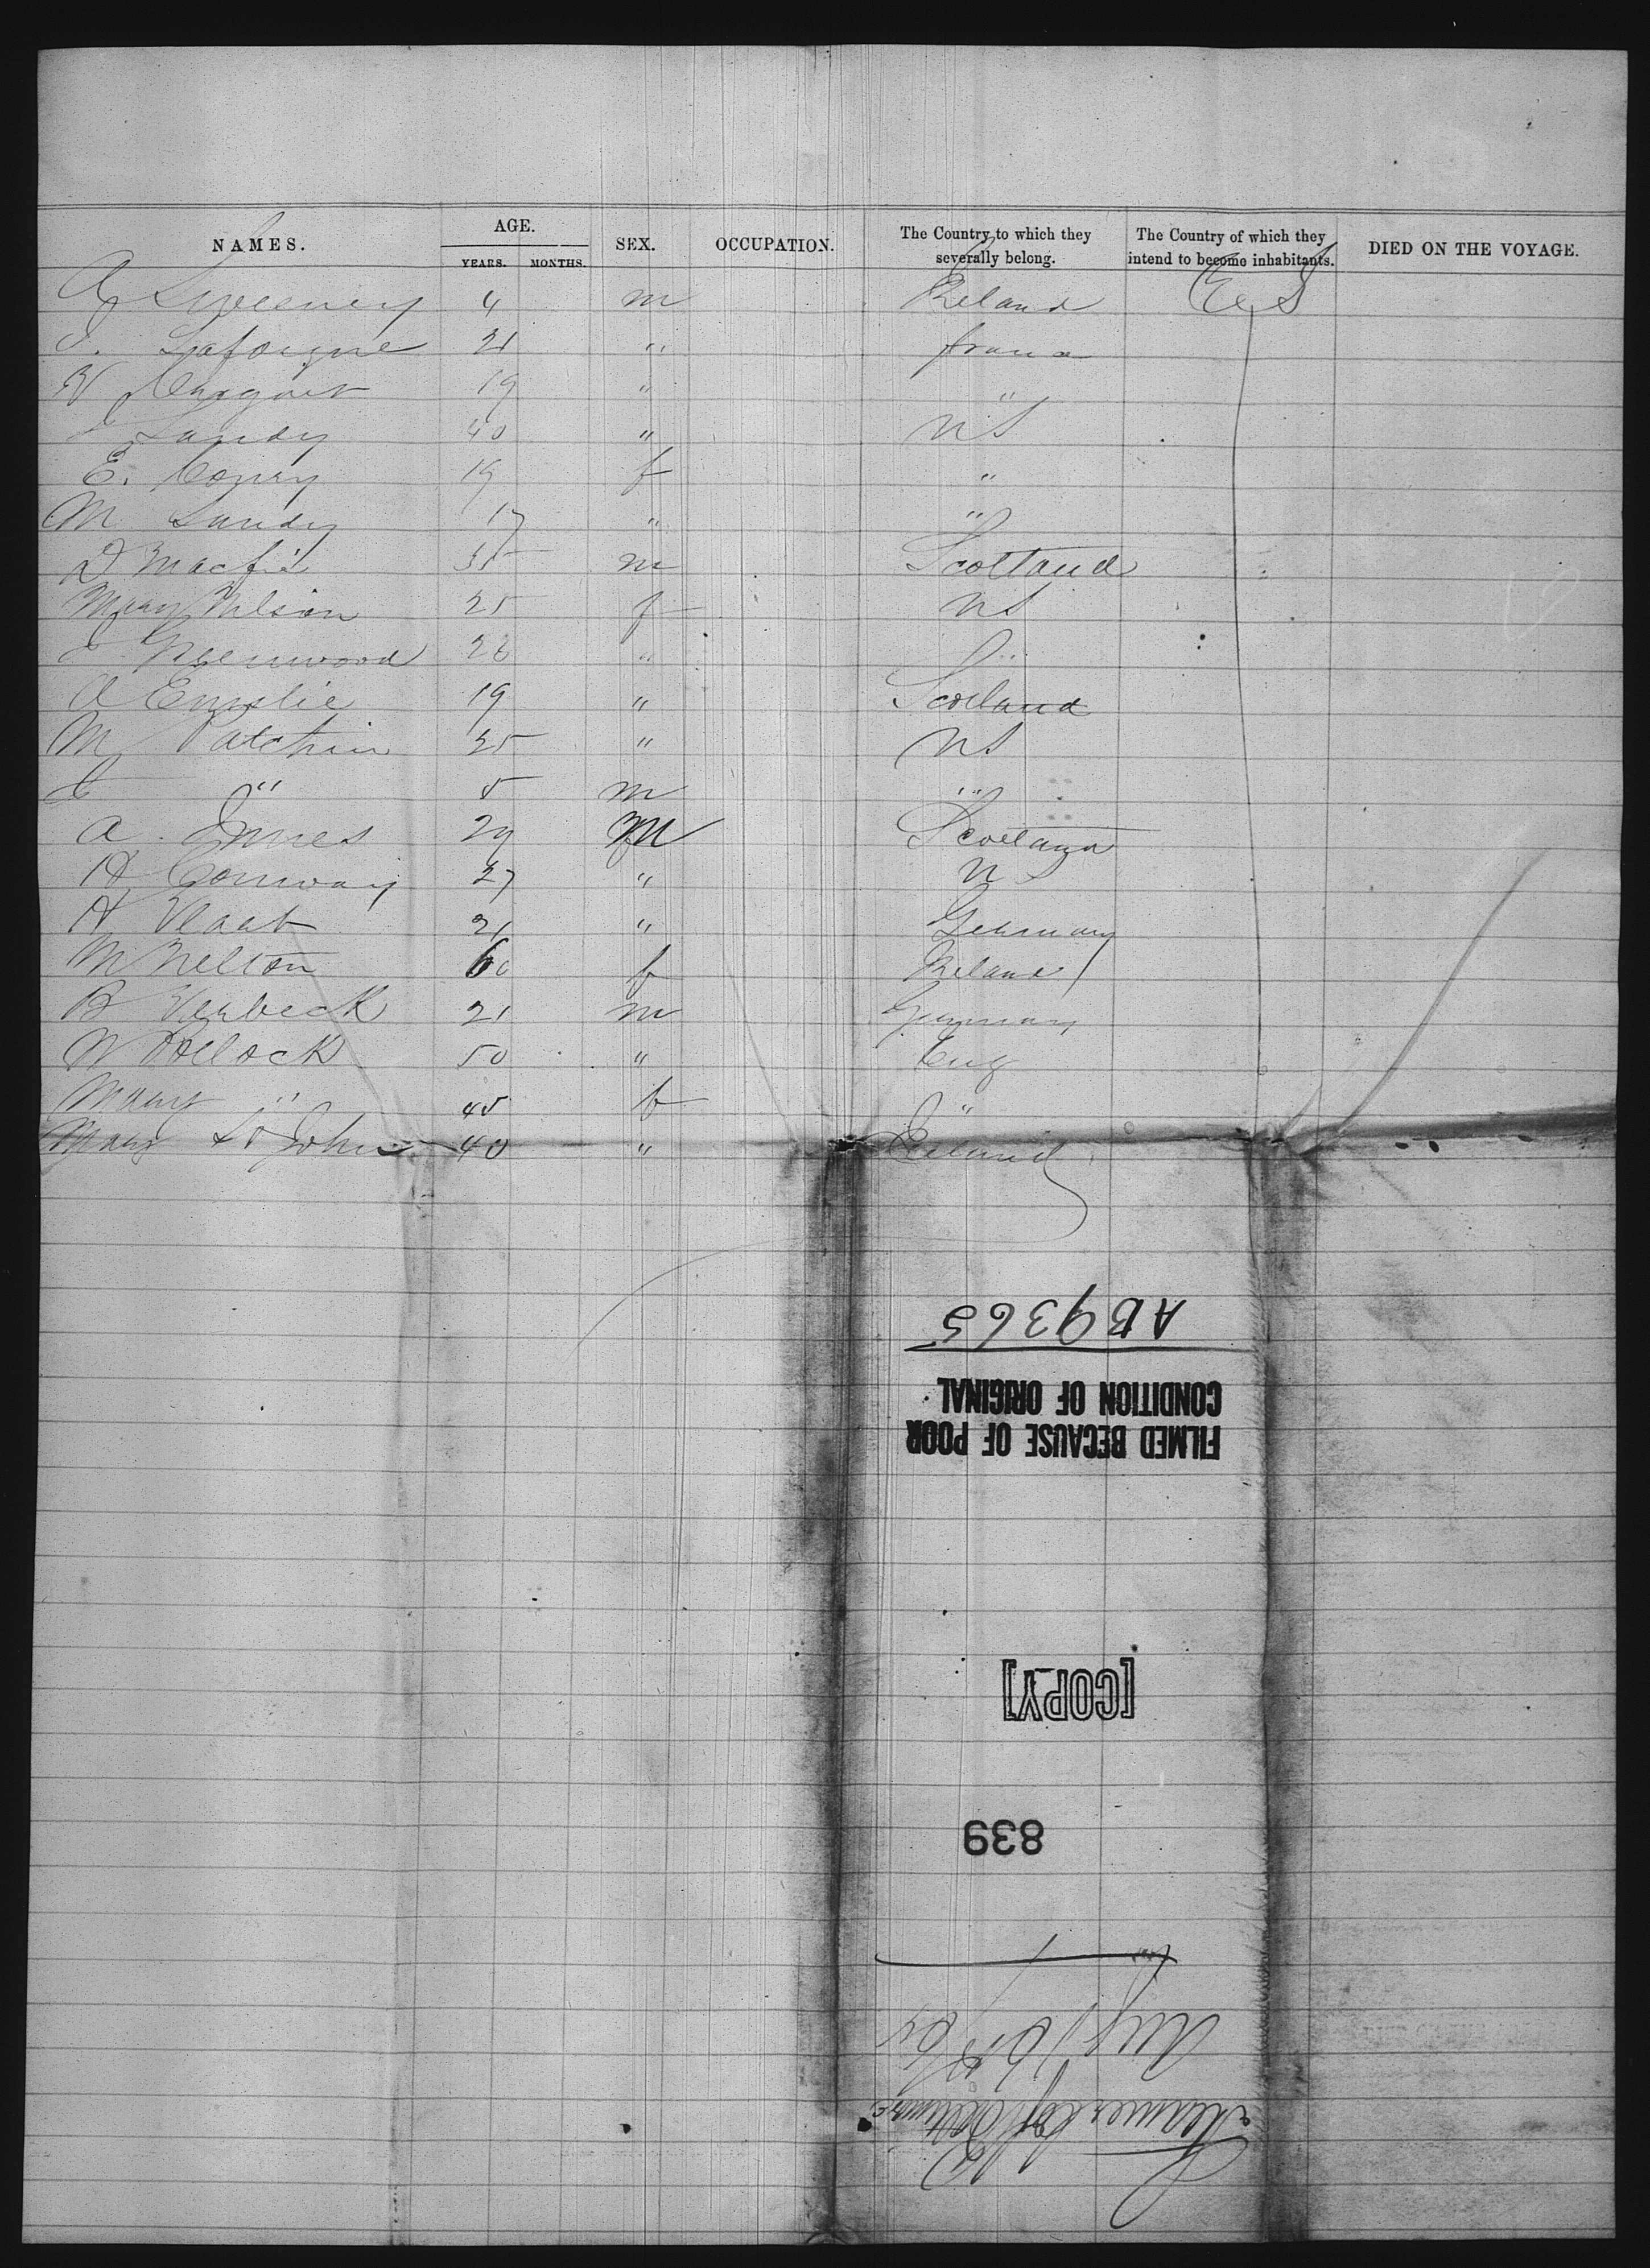 NAMES. AGE. YEARS. MONTHS. SEX. OCCUPATION. The Country to which they severally belong. The Country of which they intend to become inhabitants. DIED ON THE VOYAGE.
A Sweeney 4 m Ireland U S
Laforgne 21 " france
19 " "
Landy 40 " N S
E. Conry 19 f "
M Landy 17 " "
D Macfie 35 m Scotland
Mary Nelson 25 f N S
J Greenwood 26 " "
A Emslie 19 " Scotland
M Patchin 25 " N S
C " 5 m "
A. Innes 29 M Scotland
H Conway 27 " N S
H Vlaat 21 " Germany
M Nelson 60 f Ireland
B Verbeck 21 m Germany
W Pollock 50 " Eng
Mary " 45 f "
Mary St John 40 " Ireland
AB9365
CONDITION OF ORIGINAL
FILMED BECAUSE OF POOR
[COPY]
839
Aug
Steamer City of Baltimore